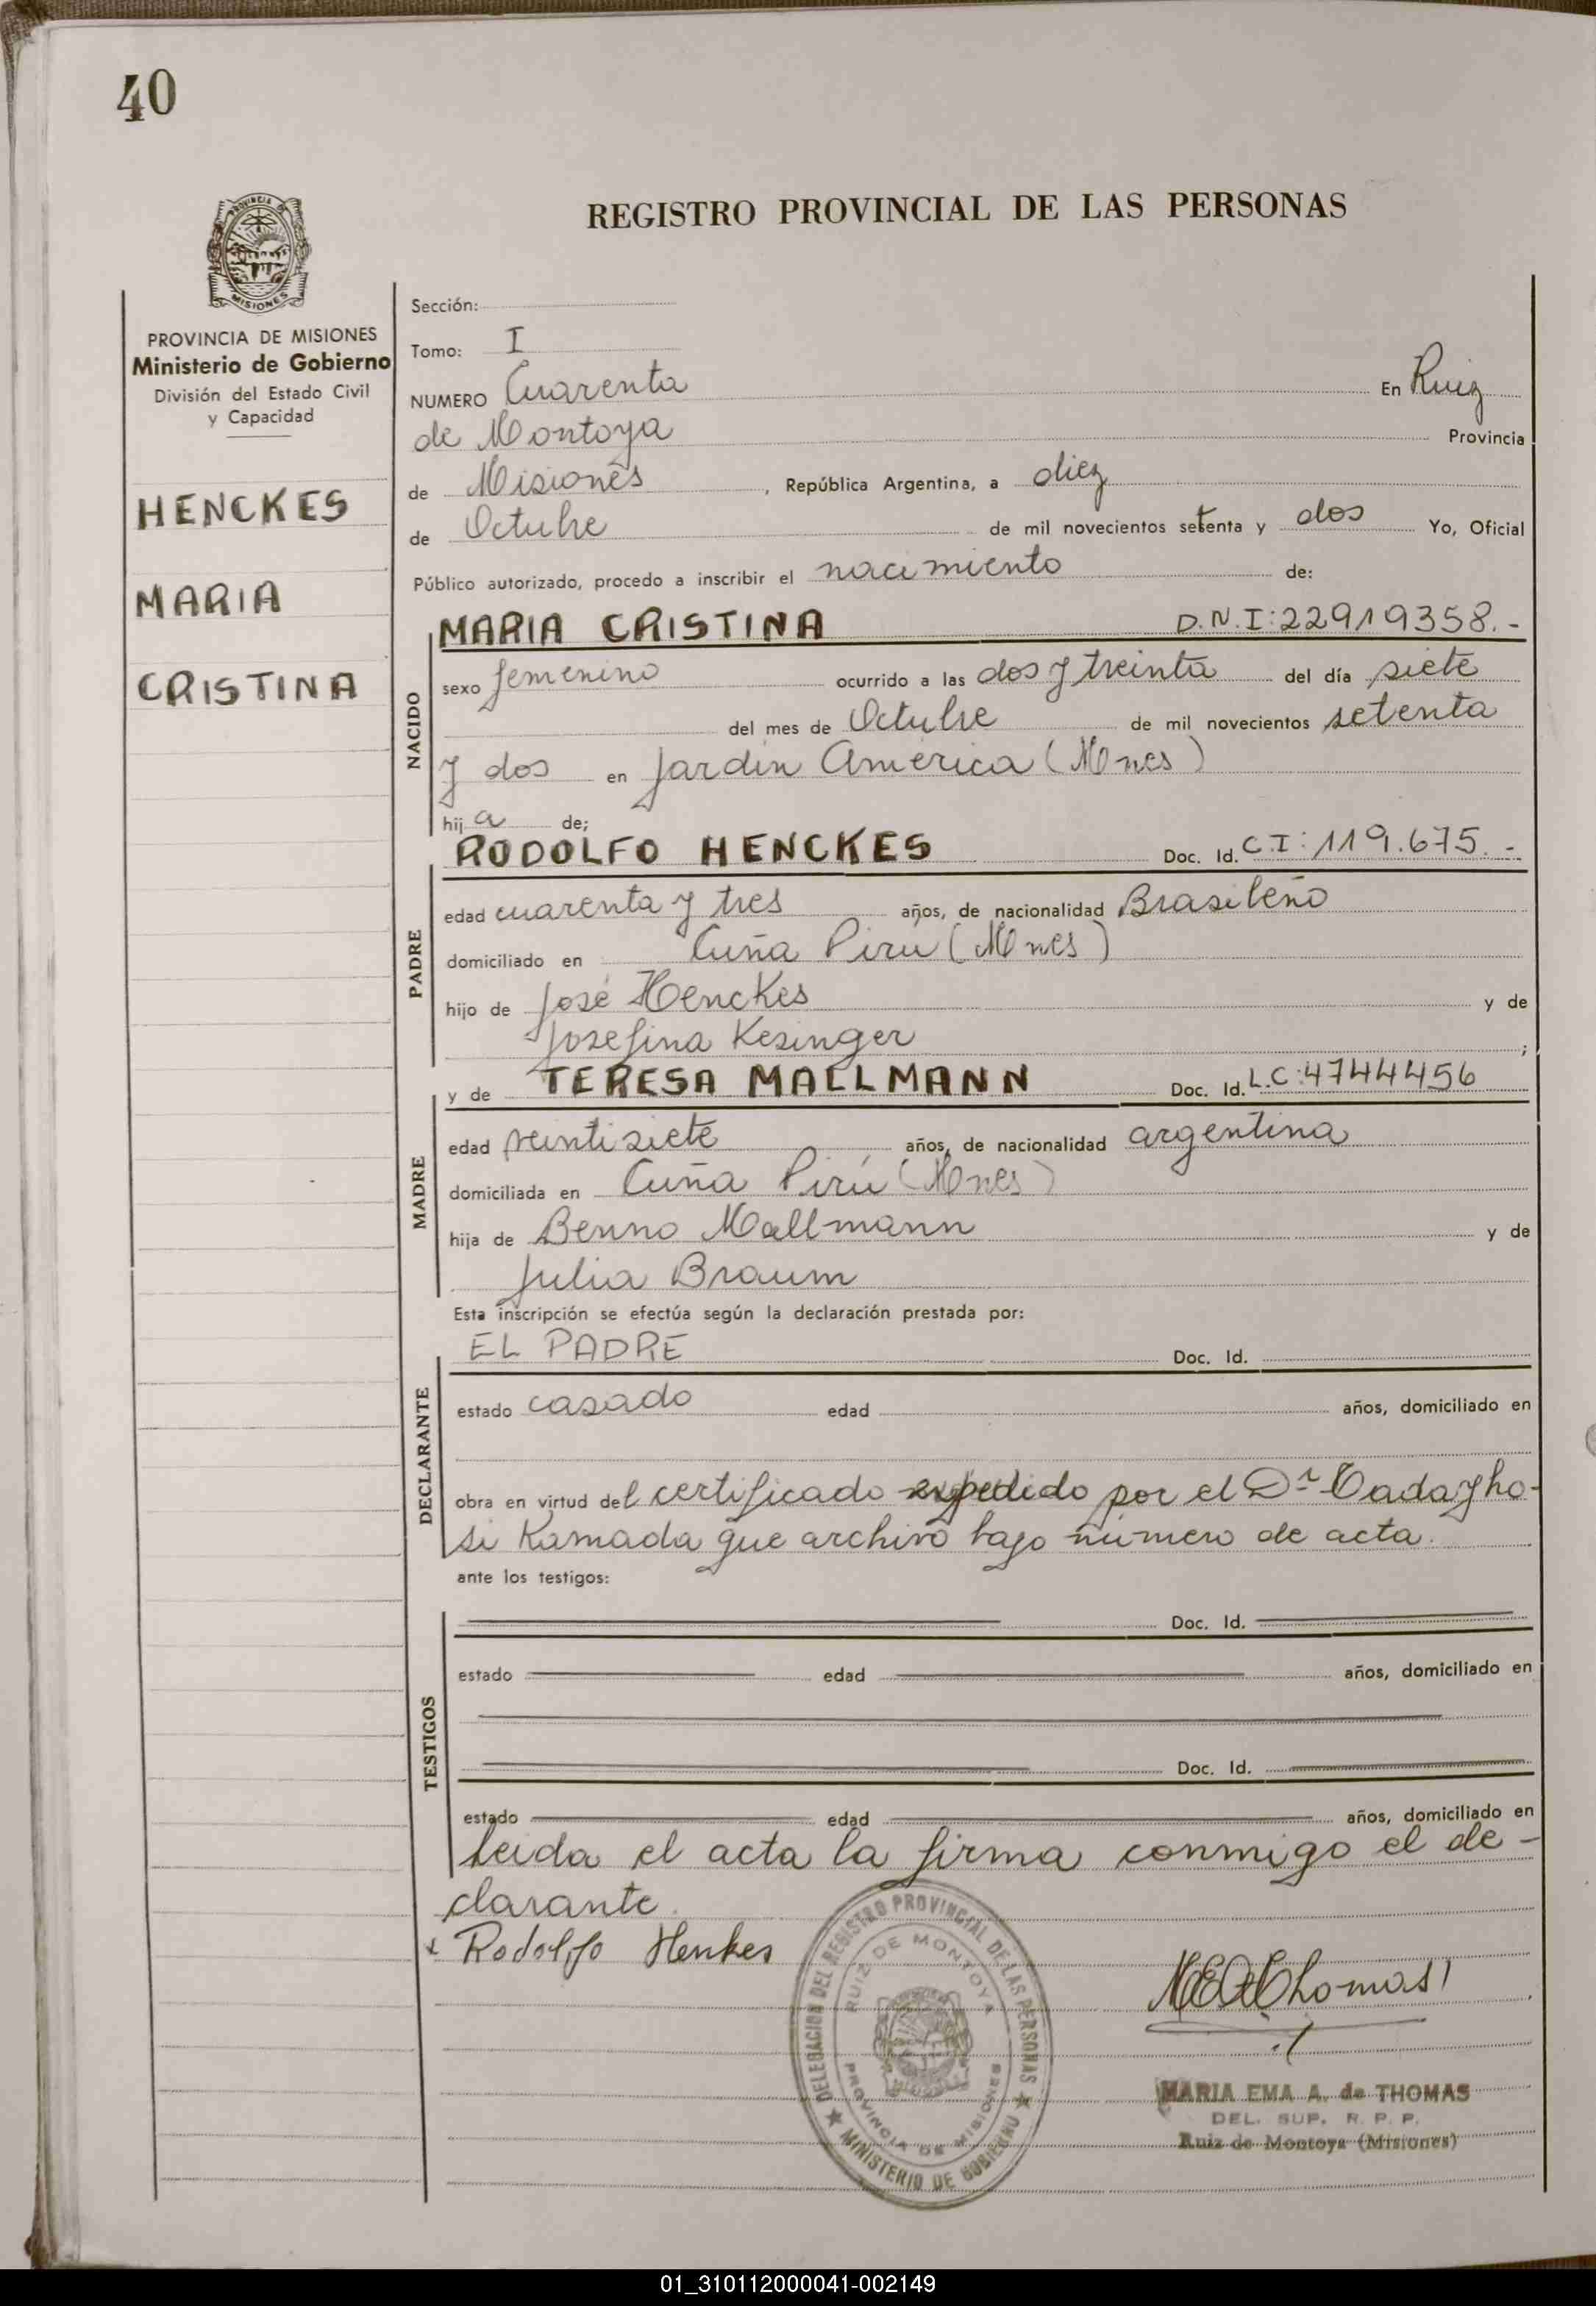 40
REGISTRO PROVINCIAL DE LAS PERSONAS
PROVINCIA DE MISIONES
MISIONES
PROVINCIA DE MISIONES
Ministerio de Gobierno
División del Estado Civil
y Capacidad
HENCKES
MARIA
CRISTINA
Sección:
Tomo: I
NUMERO Cuarenta En Ruiz
de Montoya Provincia
de Misiones, República Argentina, a diez
de Octubre de mil novecientos setenta y dos Yo, Oficial
Público autorizado, procedo a inscribir el nacimiento de:
NACIDO
MARIA CRISTINA D.N.I:22919358.-
sexo femenino ocurrido a las dos y treinta del día siete
del mes de Octubre de mil novecientos setenta
y dos en Jardin America (Mnes)
hija de;
PADRE
RODOLFO HENCKES Doc. Id. C.I:119.675.-
edad cuarenta y tres años, de nacionalidad Brasileño
domiciliado en Cuña Pirú (Mnes)
hijo de José Henckes y de
Josefina Kesinger;
MADRE
y de TERESA MALLMANN Doc. Id. L.C:4744456
edad veintisiete años, de nacionalidad argentina
domiciliada en Cuña Pirú (Mnes)
hija de Benno Mallmann y de
Julia Braum
Esta inscripción se efectúa según la declaración prestada por:
DECLARANTE
EL PADRE Doc. Id.
estado casado edad años, domiciliado en
obra en virtud del certificado expedido por el Dr Tadayho-
si Kamada que archivo bajo número de acta.
ante los testigos:
TESTIGOS
Doc. Id.
estado edad años, domiciliado en
Doc. Id.
estado edad años, domiciliado en
Leida el acta la firma conmigo el de-
clarante.
x Rodolfo Henkes
DELEGACION DEL REGISTRO PROVINCIAL DE LAS PERSONAS
RUIZ DE MONTOYA
PROVINCIA DE MISIONES
★ MINISTERIO DE GOBIERNO ★
MEAdeThomas
MARIA EMA A. de THOMAS
DEL. SUP. R. P. P.
Ruiz de Montoya (Misiones)
01_310112000041-002149